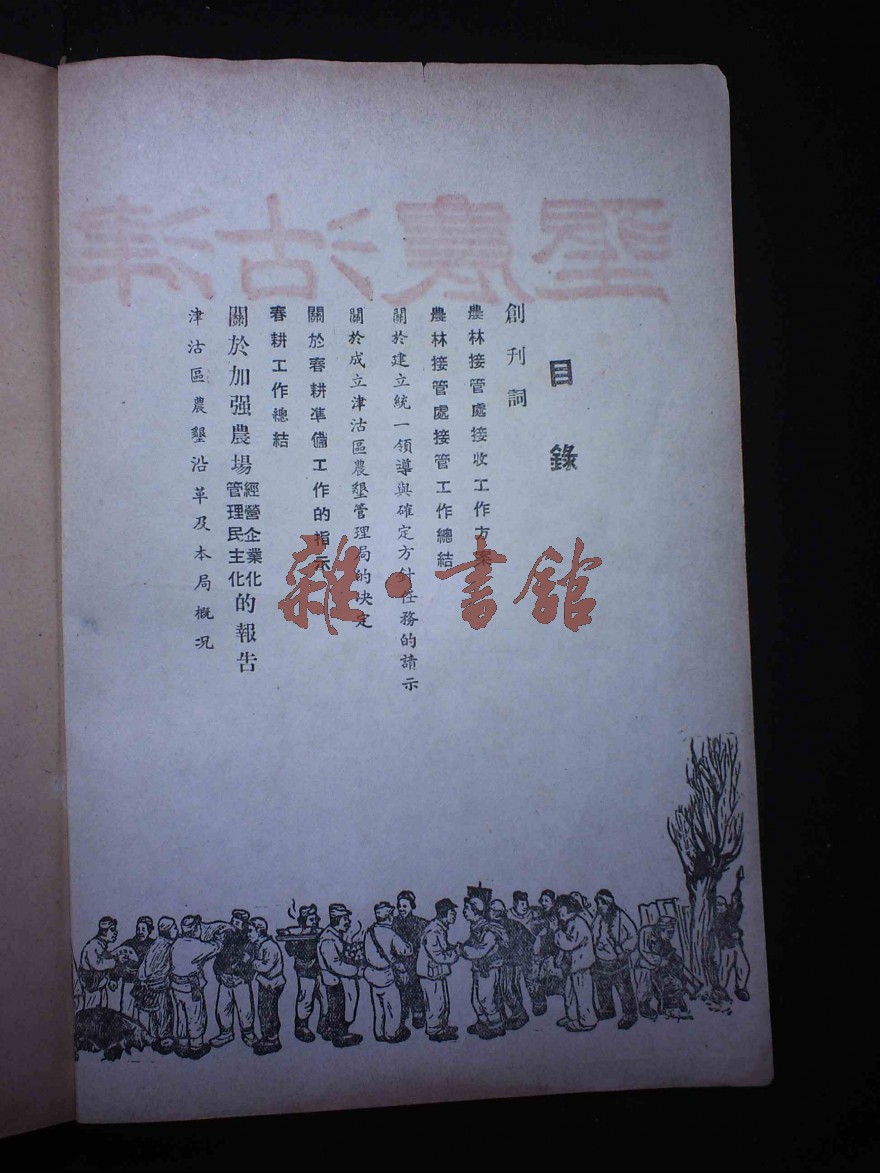 目錄
創刊詞
農林接管處接收工作方案
農林接管處接管工作總結
關於建立統一領導與確定方針任務的請示
關於成立津沽區農墾管理局的决定
關於春耕準備工作的指示
春耕工作總結
關於加强農場經營企業化管理民主化的報告
津沽區農墾沿革及本局概況
津沽農墾
雜·書館